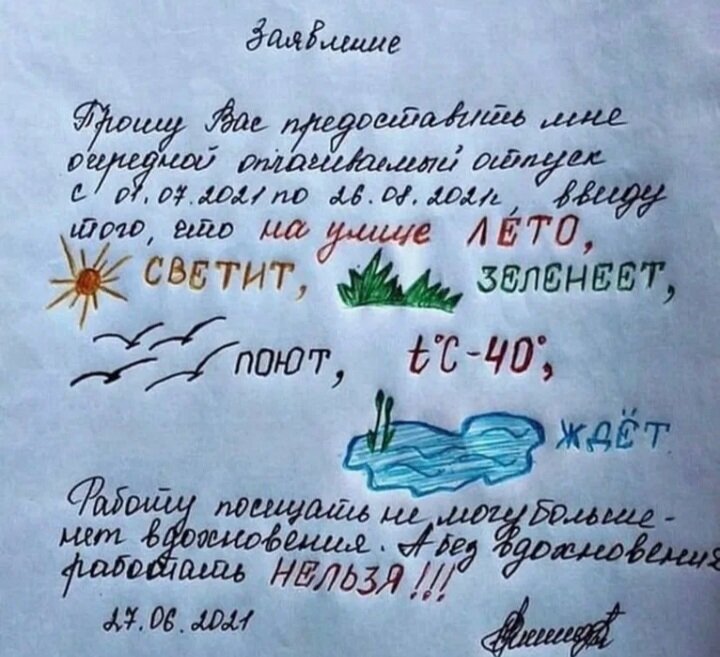 Заявление
Прошу Вас предоставить мне
очередной оплачиваемый отпуск
с 01.07.2021 по 26.08.2021г, ввиду
того, что на улице ЛЕТО,
СВЕТИТ, ЗЕЛЕНЕЕТ,
ПОЮТ, t°C-40°,
ЖДЁТ
Работу посещать не могу больше-
нет вдохновения. А без вдохновения
работать НЕЛЬЗЯ!!!
27.06.2021